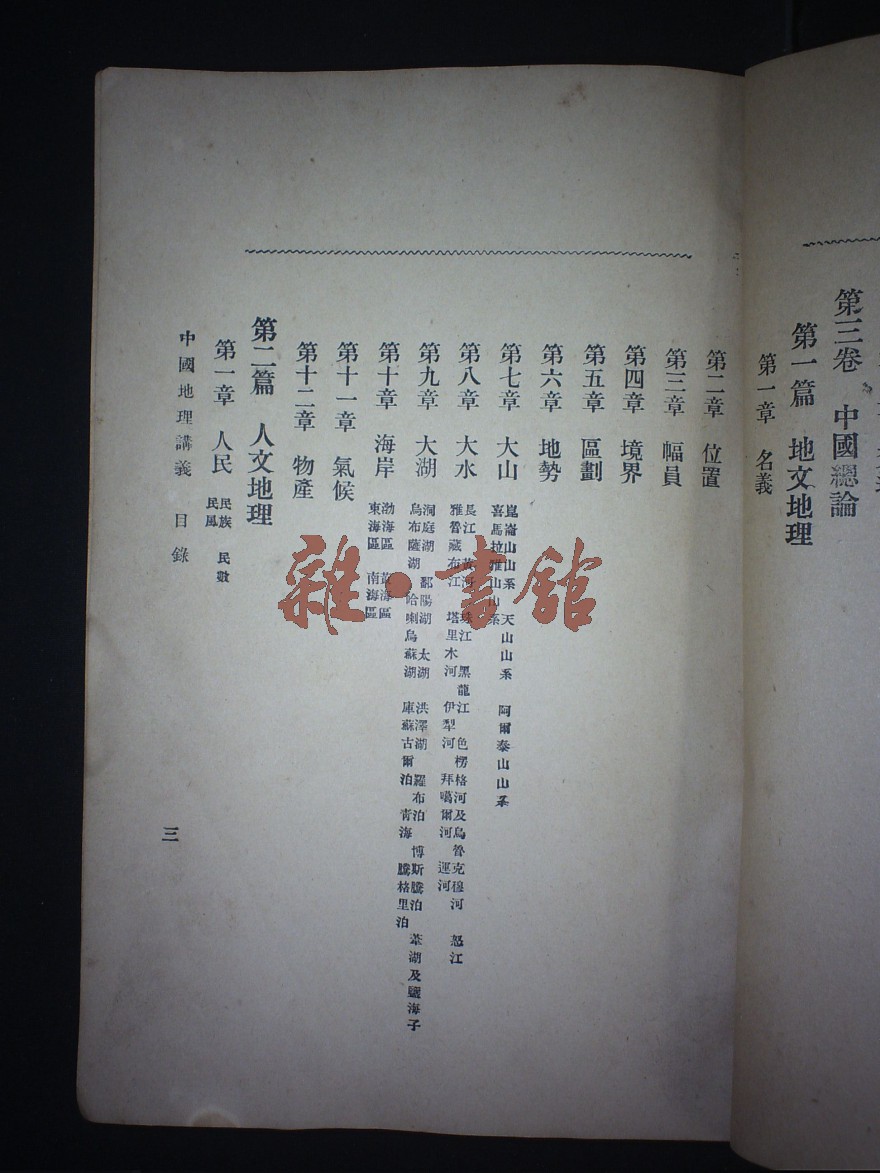 第三卷 中國總論
第一篇 地文地理
第一章 名義
第二章 位置
第三章 幅員
第四章 境界
第五章 區劃
第六章 地勢
第七章 大山
崑崙山山系 天山山系 阿爾泰山山系
喜馬拉雅山山系
第八章 大水
長江 黃河 珠江 黑龍江 色楞格河及烏魯克穆河 怒江
雅魯藏布江 塔里木河 伊犁河 拜噶爾河 運河
第九章 大湖
洞庭湖 鄱陽湖 太湖 洪澤湖 羅布泊 博斯騰泊 葦湖及鹽海子
烏布薩湖 哈喇烏蘇湖 庫蘇古爾泊 青海 騰格里泊
第十章 海岸
渤海區 黃海區
東海區 南海區
第十一章 氣候
第十二章 物產
第二篇 人文地理
第一章 人民
民族 民數
民風
中國地理講義 目錄
三
雜·書館